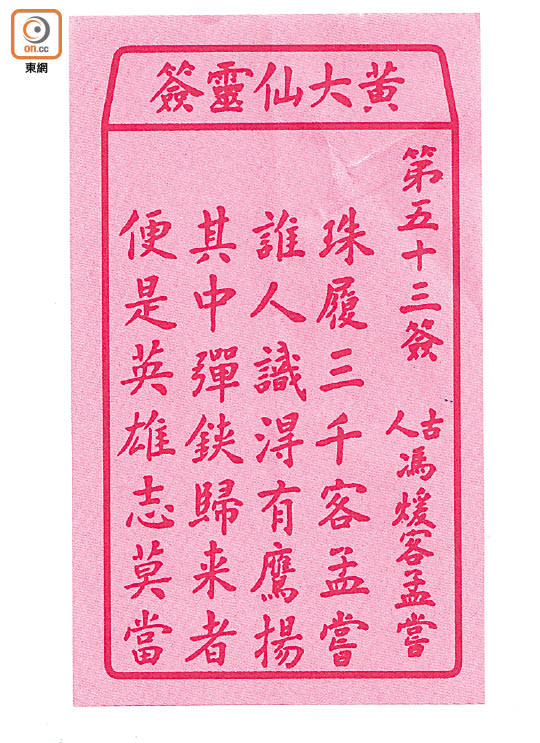 on.cc
東網
黃大仙靈簽
第五十三簽
古人 馮煖客孟嘗
珠履三千客孟嘗
誰人識得有鷹揚
其中彈鋏歸来者
便是英雄志莫當